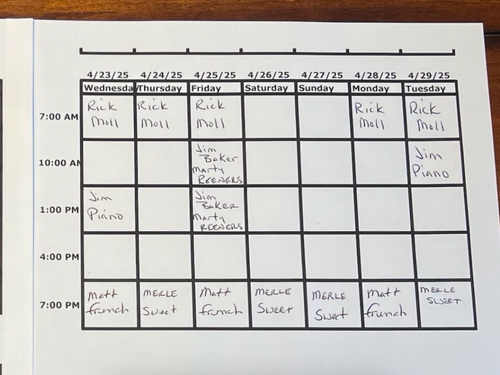 4/23/25 4/24/25 4/25/25 4/26/25 4/27/25 4/28/25 4/29/25
Wednesda Thursday Friday Saturday Sunday Monday Tuesday
7:00 AM
Rick Rick Rick Rick Rick
Moll Moll Moll Moll Moll
10:00 AM
Jim
Baker
Marty
REENERS
Jim
Piano
1:00 PM
Jim
Piano
Jim
BAKER
Marty
REENERS
4:00 PM
7:00 PM
Matt MERLE Matt MERLE MERLE Matt MERLE
French Sweet French SWEET Sweet French SWEET